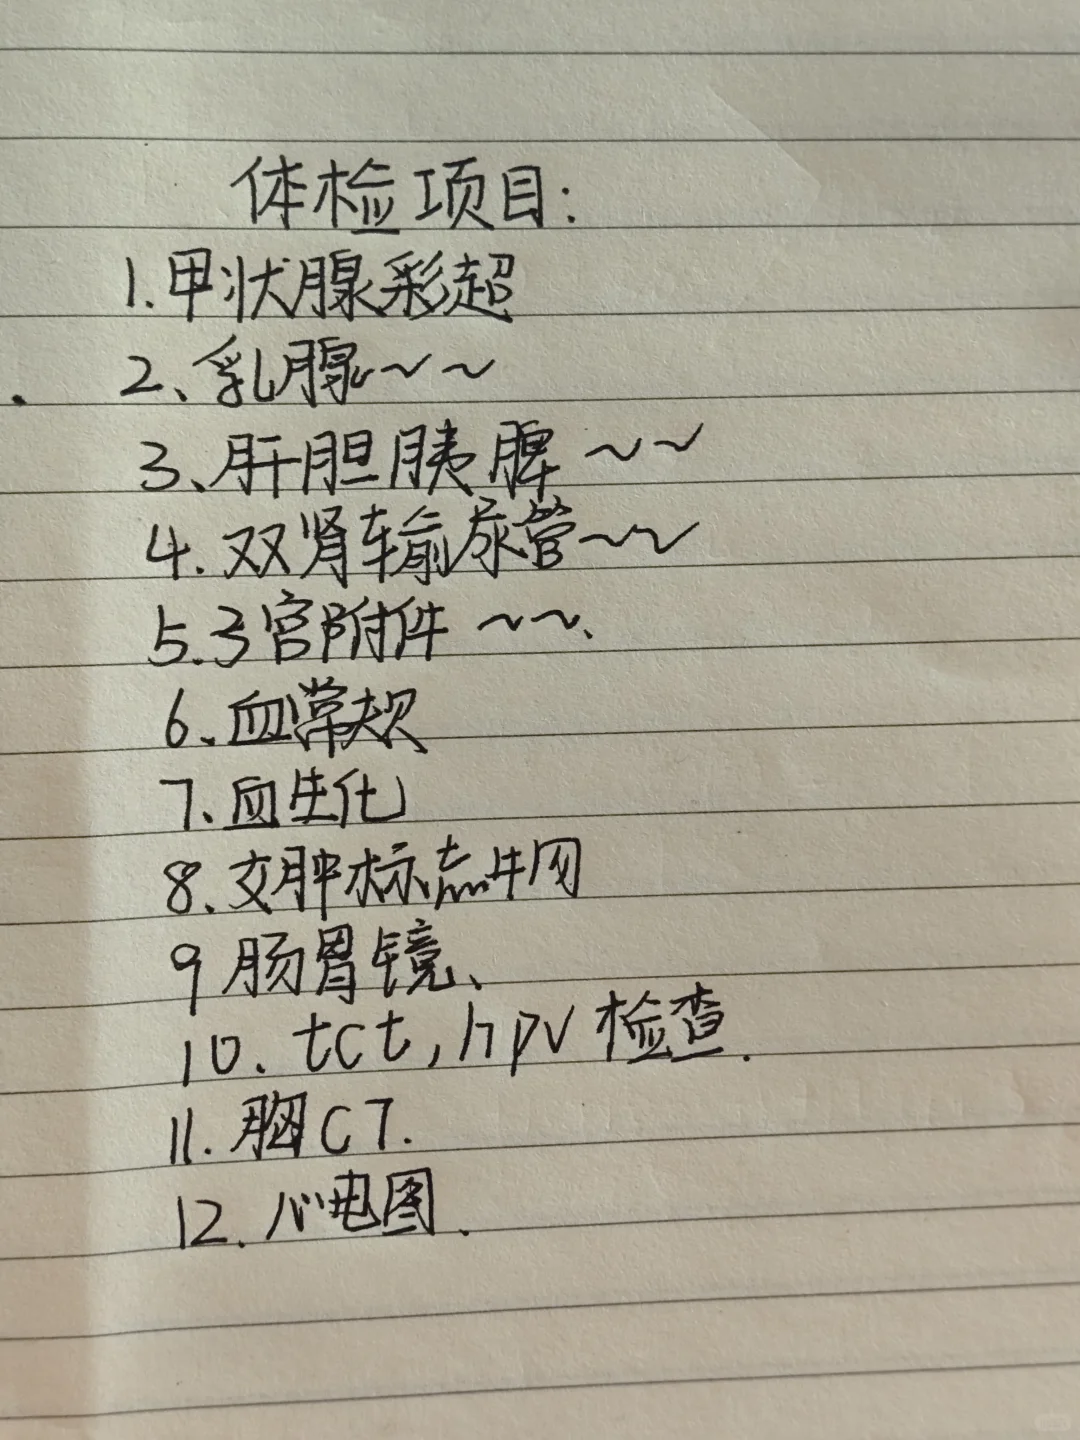 体检项目:
1.甲状腺彩超
2、乳腺~~
3、肝胆胰脾~~
4.双肾输尿管~~
5.子宫附件~~、
6、血常规
7、血生化
8、肿标志物
9肠胃镜、
10.tct,hpv检查.
11.胸CT.
12.心电图.